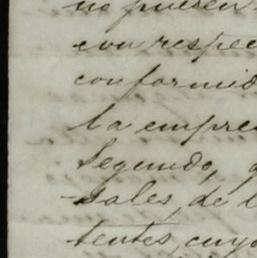 no puesen
con respec
conformid
la empre
Segundo,
sales, de l
tentes, cuyo